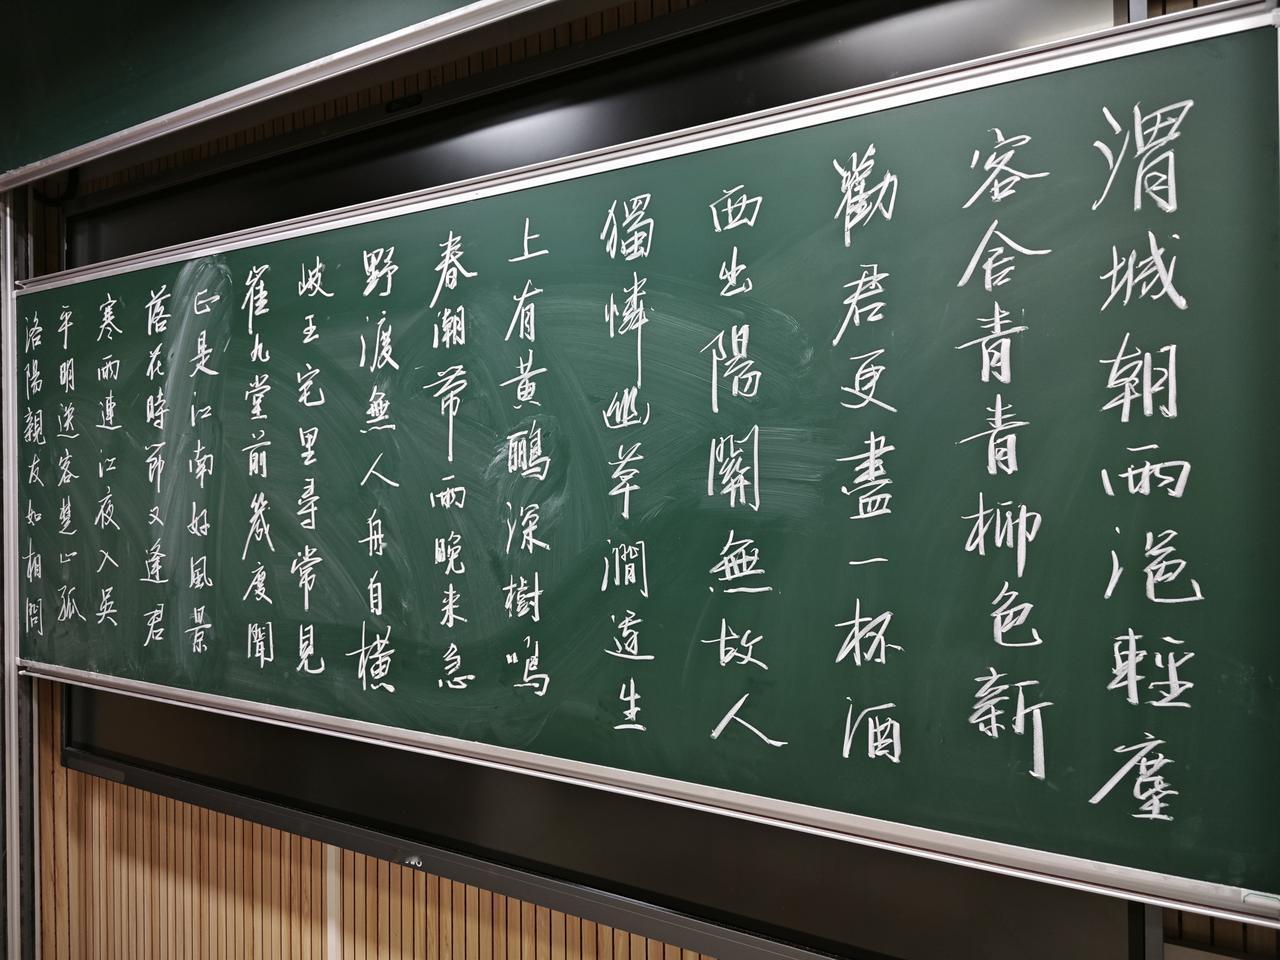 渭城朝雨浥輕塵
客舍青青柳色新
勸君更盡一杯酒
西出陽關無故人
獨憐幽草澗邊生
上有黃鸝深樹鳴
春潮带雨晚来急
野渡無人舟自橫
岐王宅里尋常見
崔九堂前幾度聞
正是江南好風景
落花時節又逢君
寒雨連江夜入吳
平明送客楚山孤
洛陽親友如相問